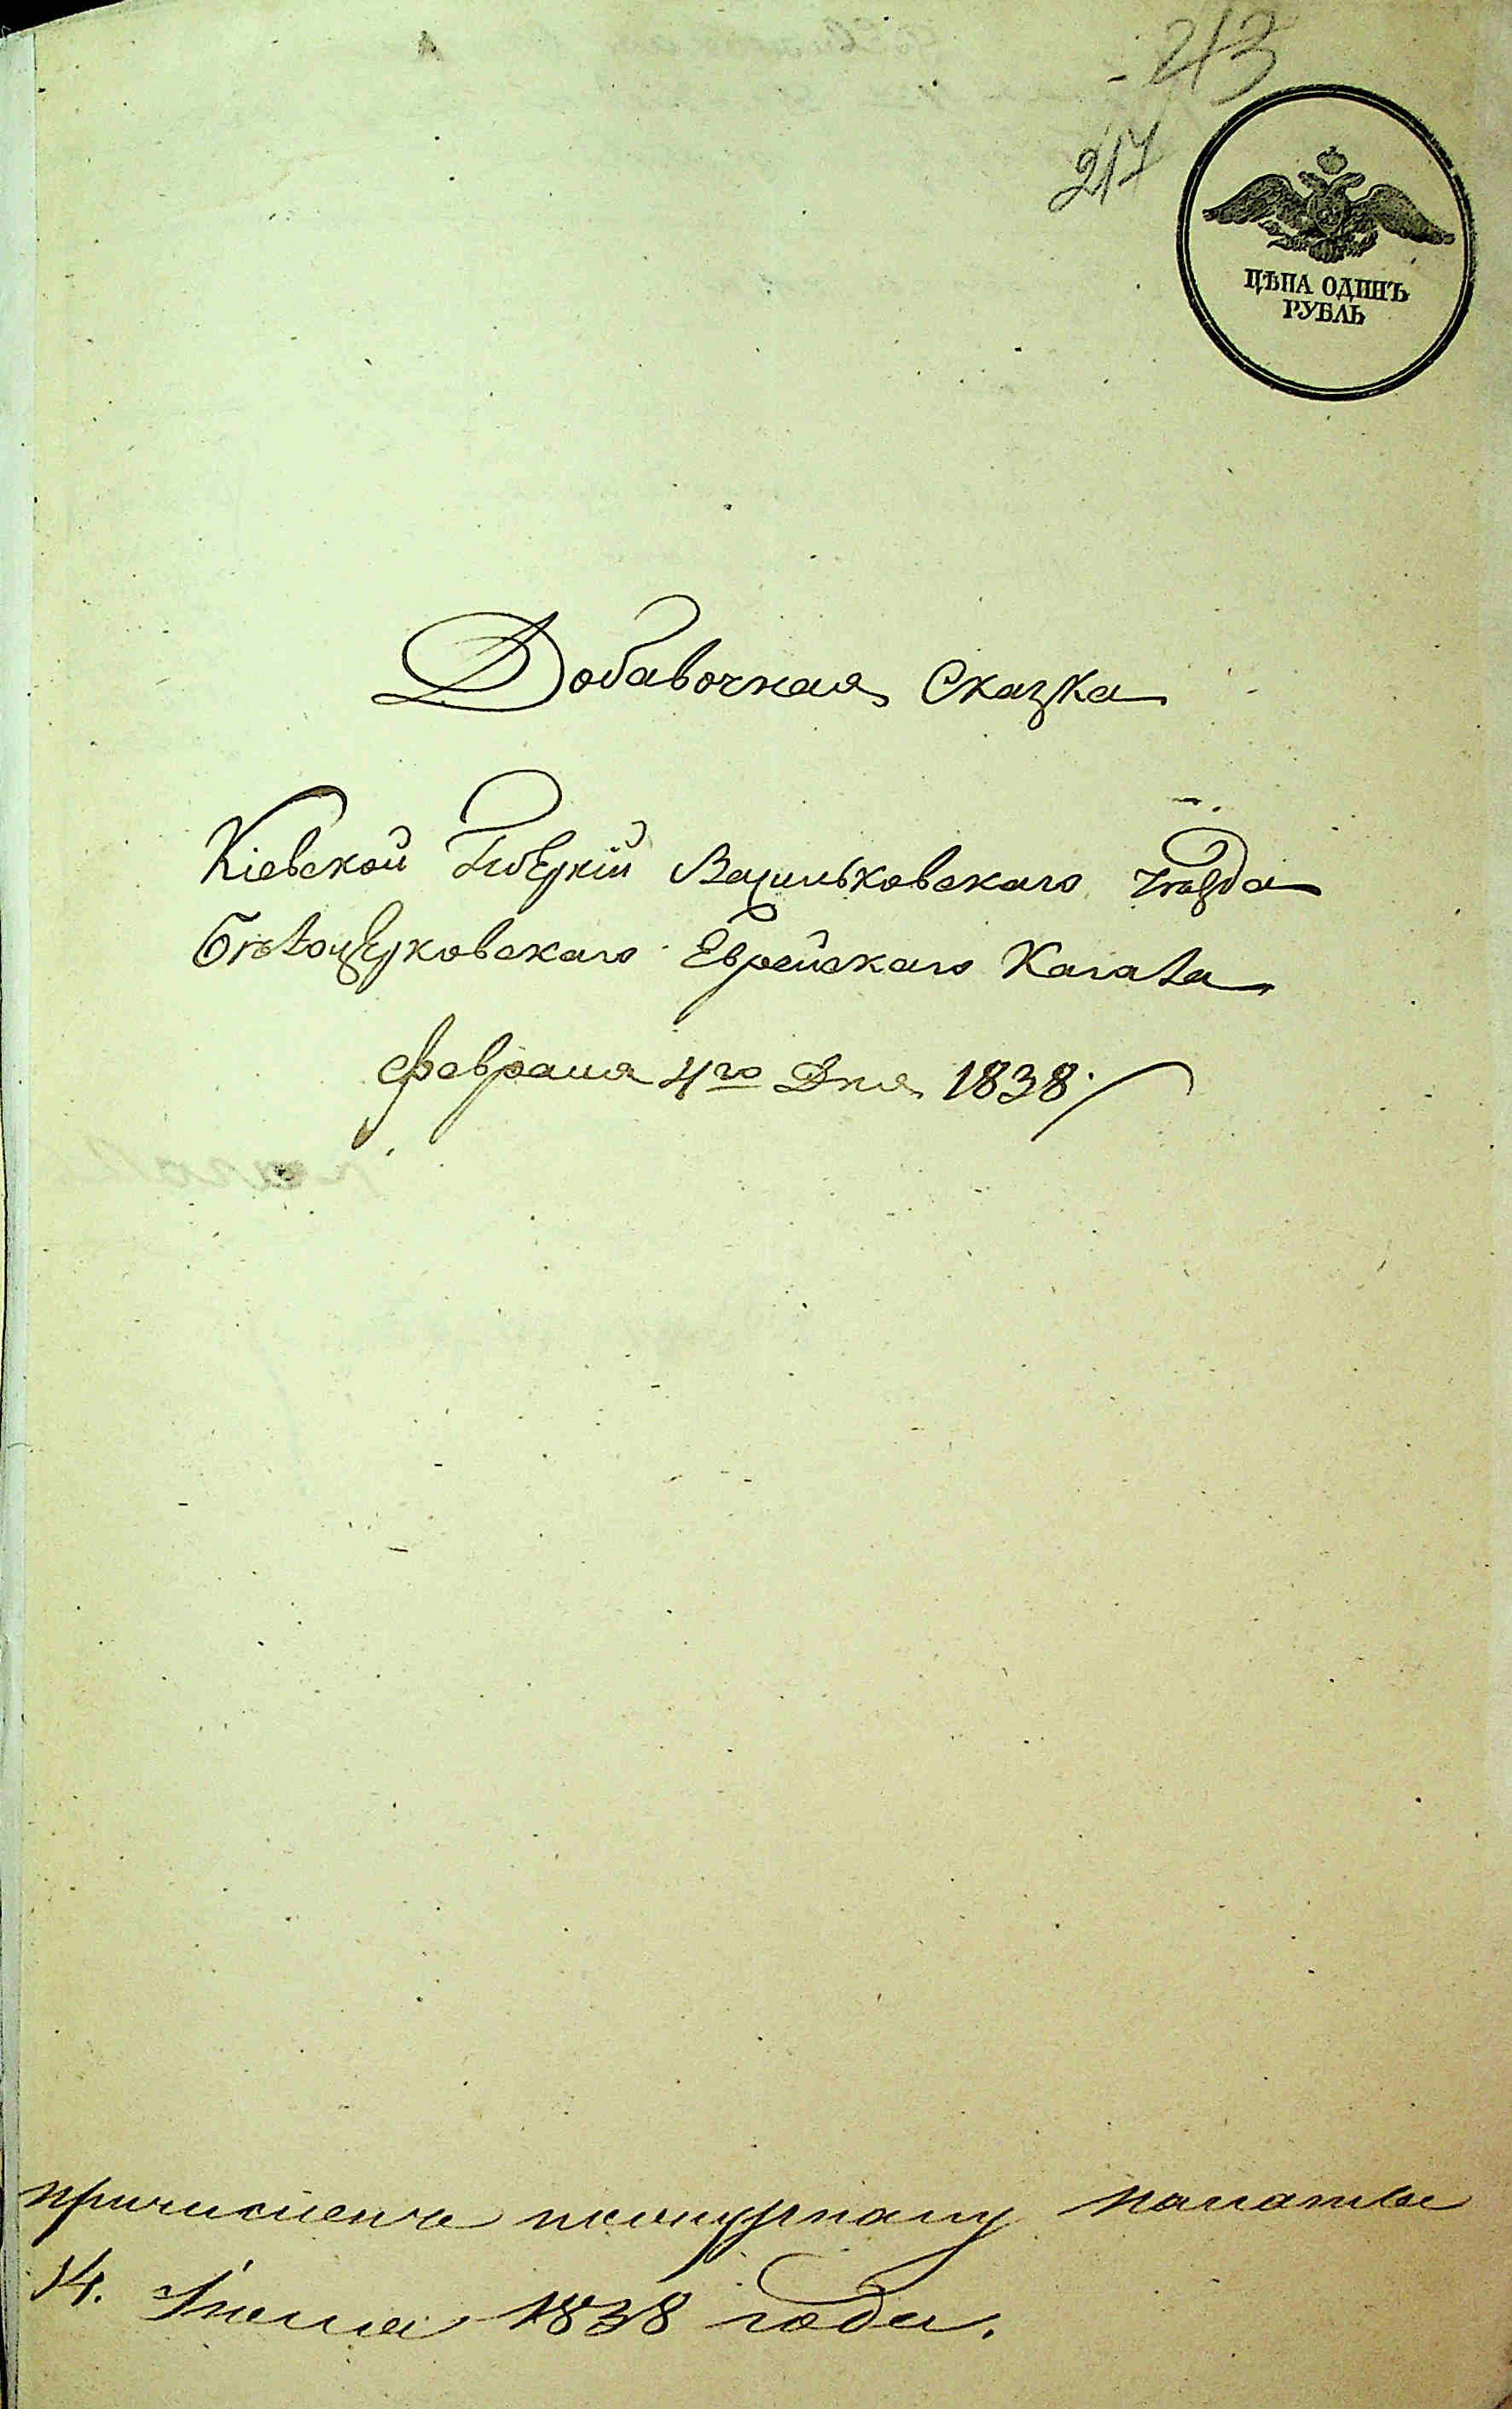 213
217
ЦѢНА ОДИНЪ
РУБЛЬ
Добавочная Сказка
Кіевской Губерніи Васильковскаго уѣзда
Бѣлоцерковскаго Еврейскаго Кагала
февраля 4го дня 1838.
причислена по журналу палаты
14. Іюля 1838 года.